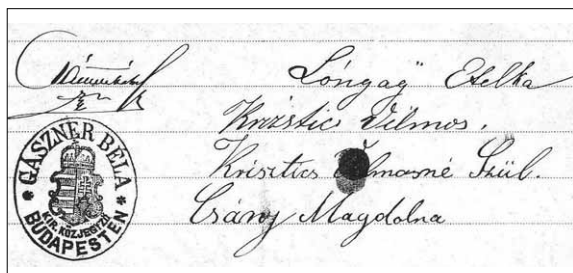 Lóngaÿ Etelka
Krisztics Vilmos.
Krisztics Vilmosné Szül.
Csány Magdolna
GÁSZNER BÉLA
KIR. KÖZJEGYZŐ
BUDAPESTEN